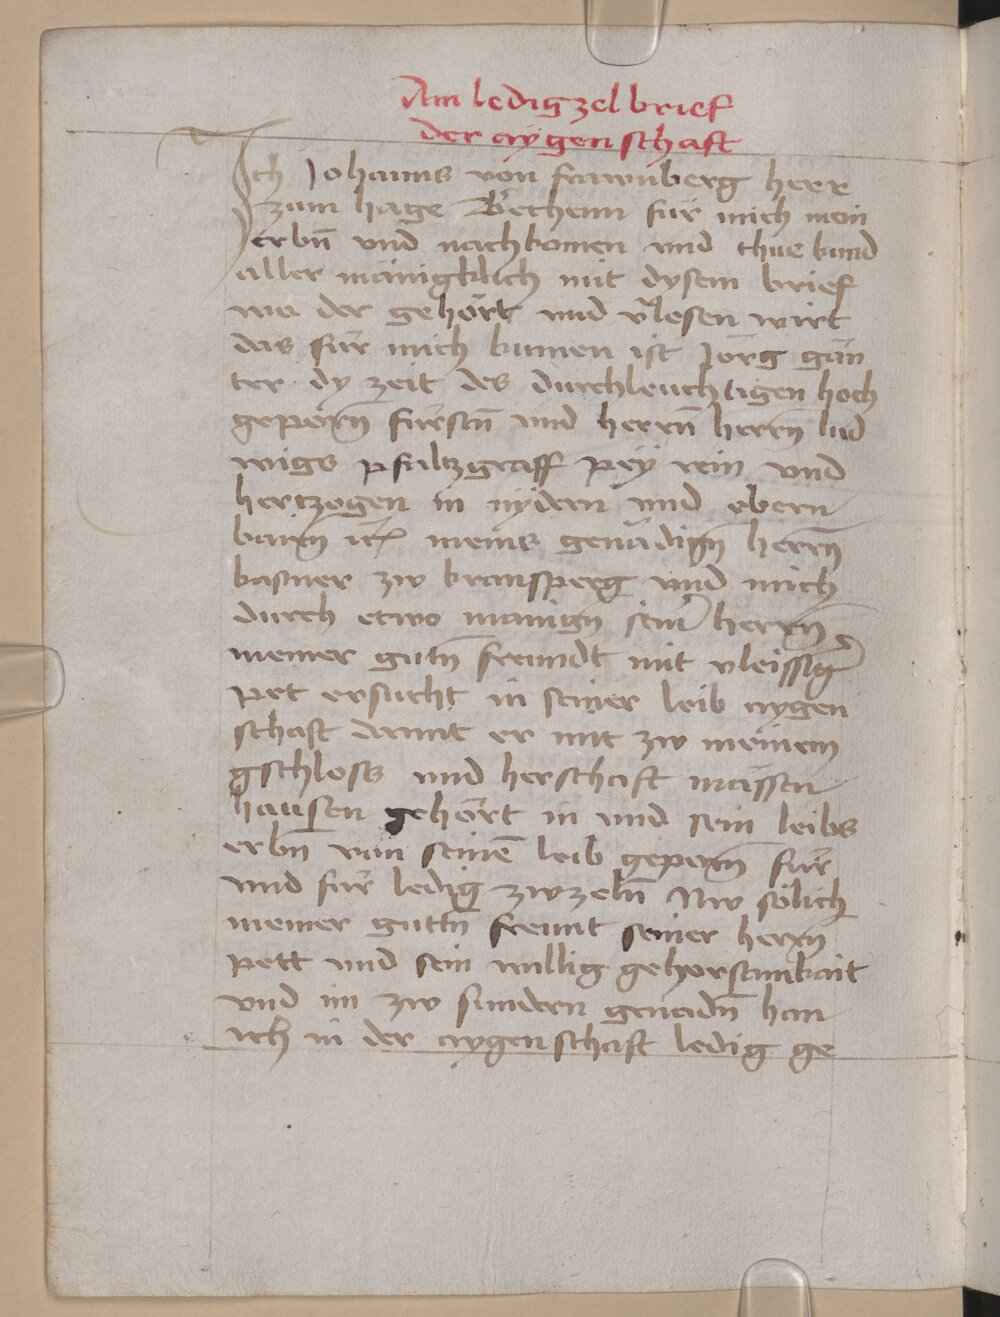 Ain ledigzel brief
der aÿgenschaft
Ich Johanns von frawnberg herr
zum hage Bechenn für mich mein
erbn̄ vnd nachkomen vnd thue kund
aller mänigklich mit dysem brief
wa der gehört vnd v̄lesen wirt
das für mich kumen ist Jörg gän
ter dy zeit des durchleuchtigen hoch
geporn̄ fürstn̄ vnd herrn̄ herrn̄ lud
wigs pfaltzgraff peÿ rein vnd
hertzogen in nÿdern vnd obern
bairn̄ ꝛc meins genädign̄ herrn̄
kastner zw kransperg vnd mich
durch etwo manign̄ sein̄ herrn̄
meiner gutn̄ freundt mit vleissiḡ
pet ersucht in seiner leib aygen
schaft damit er mit zw meinem
gschloss vnd herschaft mässen
hausen gehört in vnd sein leibs
erbn̄ van seinē leib geporn̄ für
vnd für ledig zwzeln̄ Nw sölich
meiner guttn̄ freunt seiner herrn̄
pett vnd sein willig gehorsamkait
vnd im zw sundern genadn̄ han
ich in der aygenschaft ledig ge